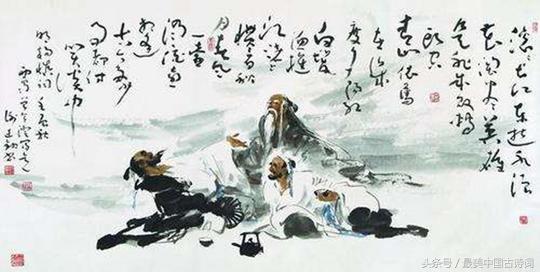 滚滚长江东逝水浪
花淘尽英雄
是非成败转
头空
青山依旧
在几度夕阳红
白发渔樵
江渚上
惯看秋
月春风
一壶
浊酒喜
相逢
古今多少
事都付
笑谈中
明杨慎词
头条号 / 最美中国古诗词